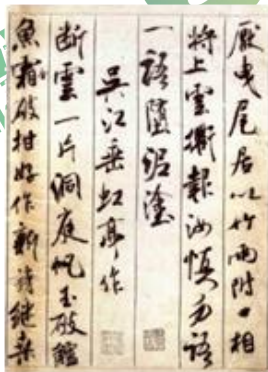 厭曳尾居以竹兩附口相
將上雲衢報汝慎勿語
一語墮泥塗
吳江垂虹亭作
断雲一片洞庭帆玉破鱸
魚霜破柑好作新詩継桑